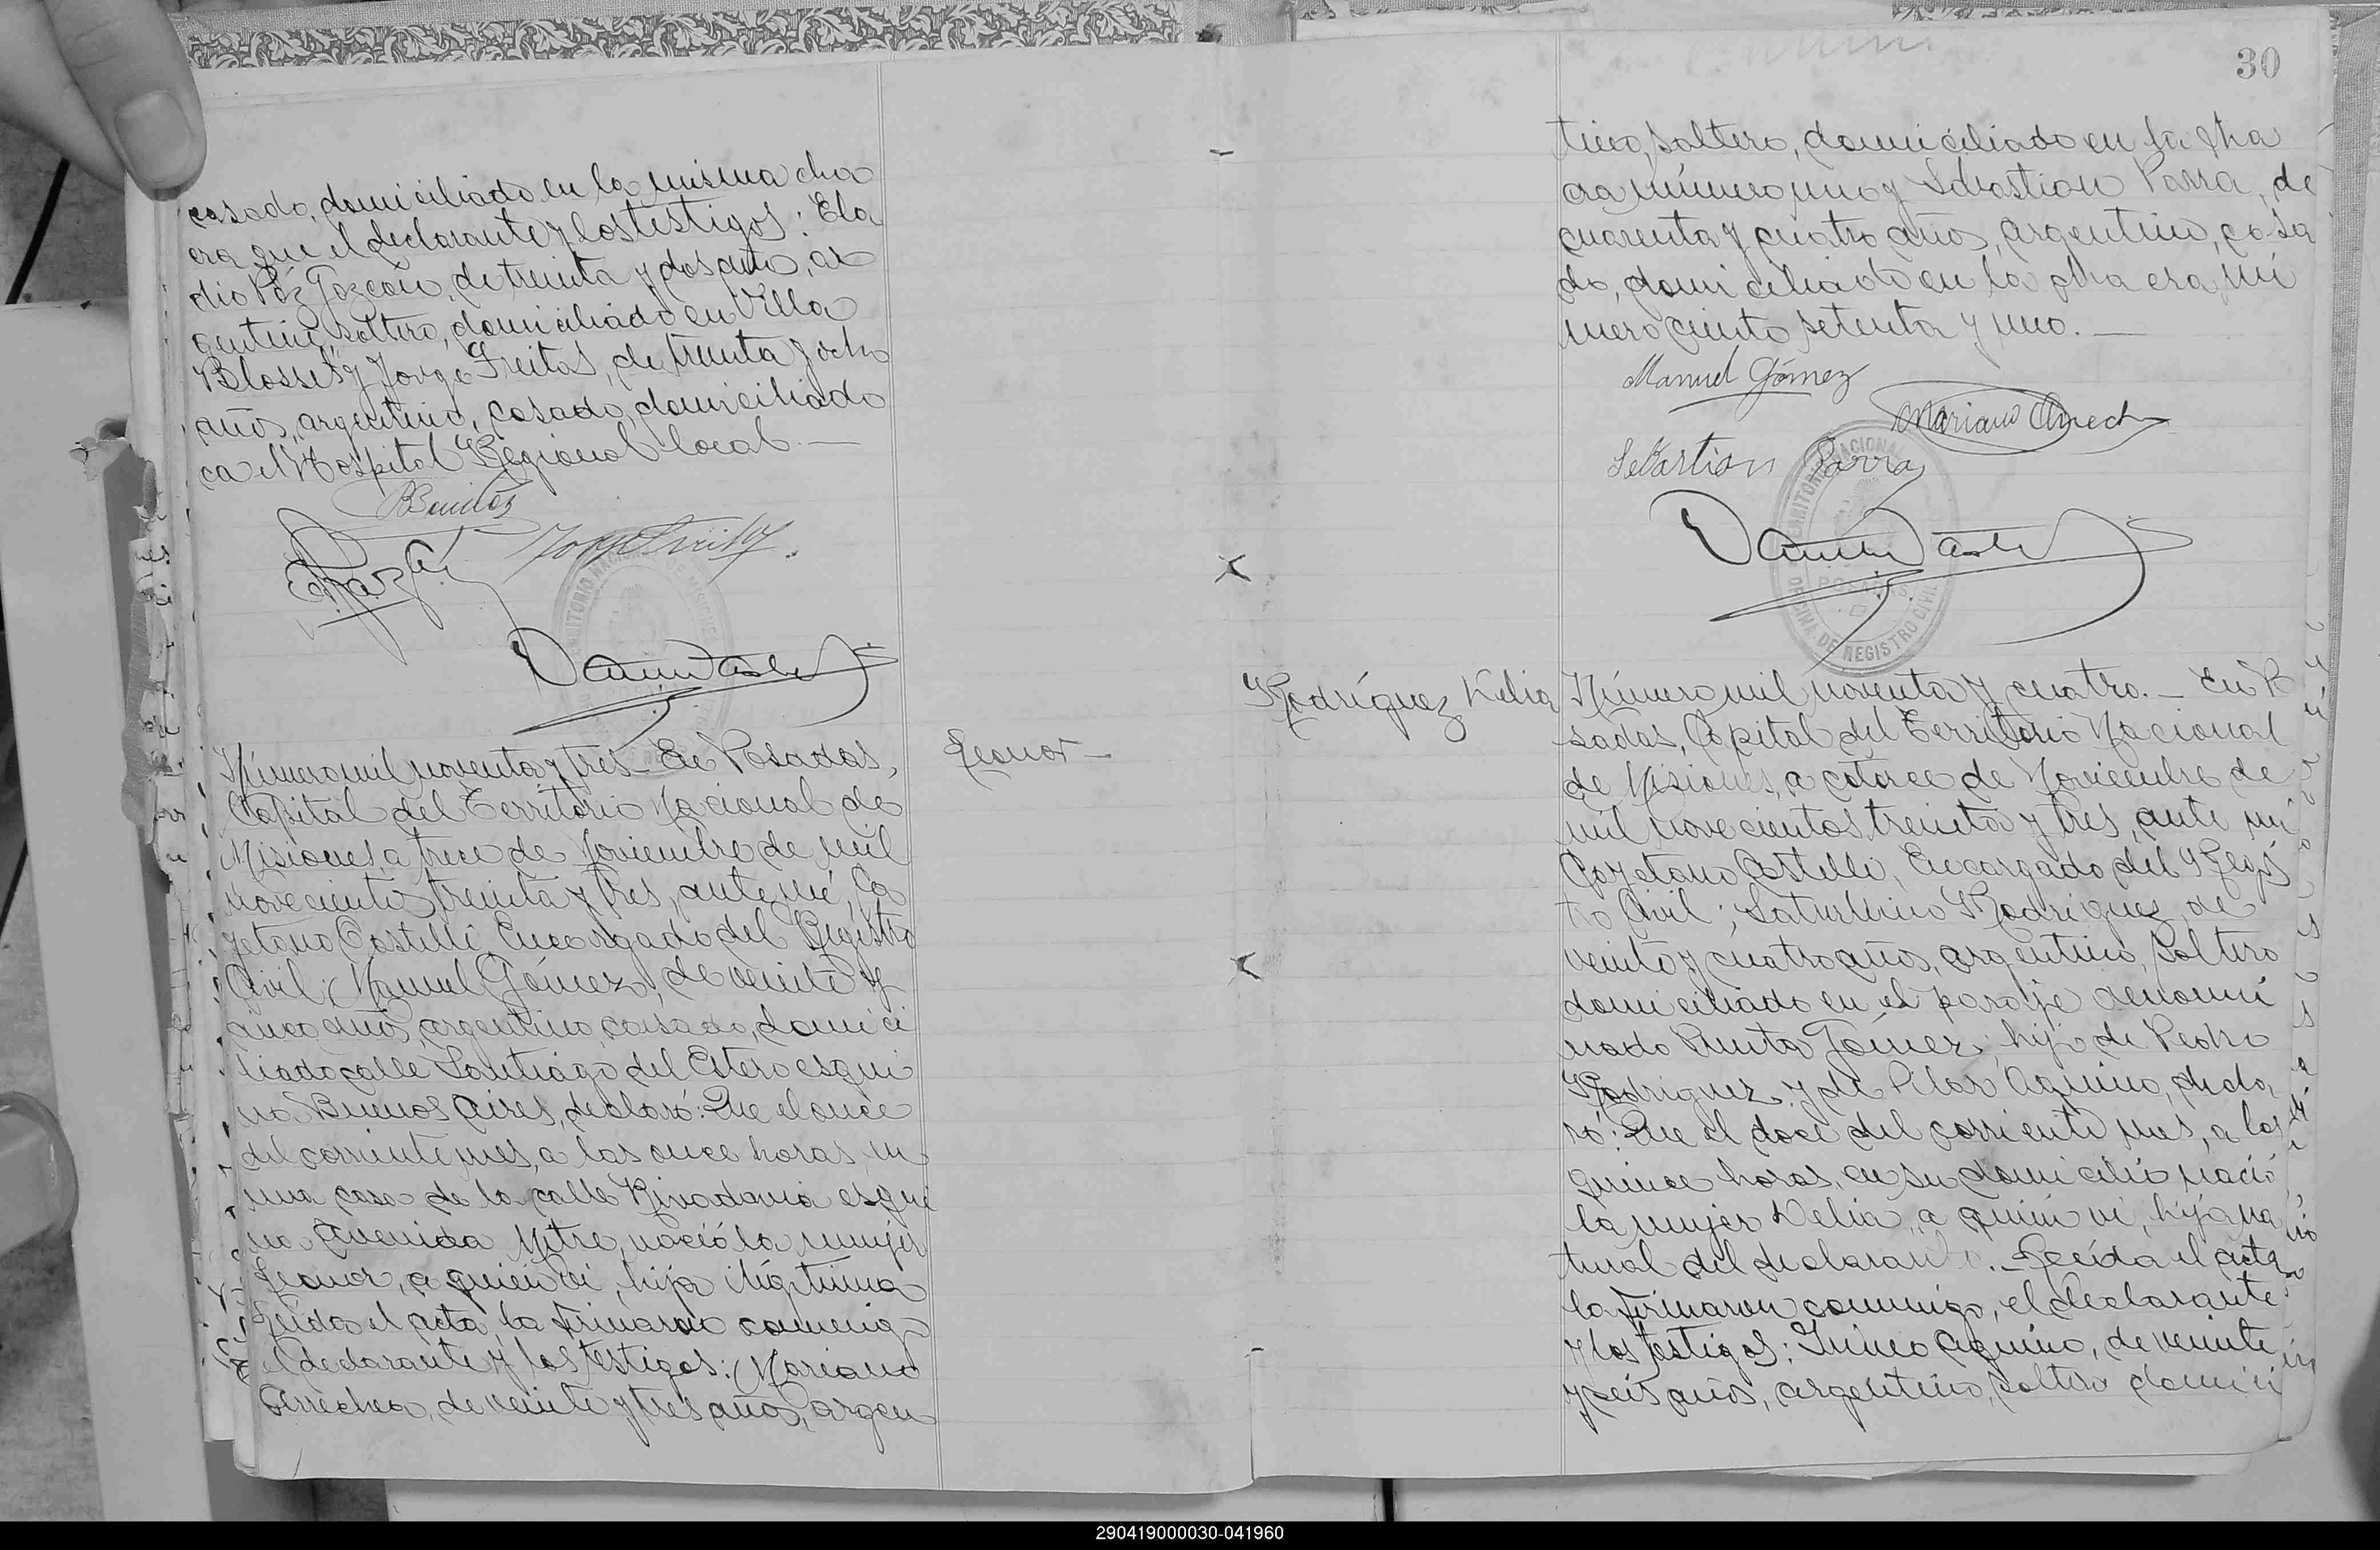 casado, domiciliado en la misma cha
cra que el declarante y los testigos: Ela
dio Páz, de treinta y dos años, ar
gentino, soltero, domiciliado en Villa
Blosset y Jorge Freitas, de treinta y ocho
años, argentino, casado, domiciliado
ca el Hospital Regional local.—
Número mil noventa y tres.— En Posadas,
Capital del Territorio Nacional de
Misiones, a trece de Noviembre de mil
novecientos treinta y tres, ante mí, Ca
yetano Castelli, Encargado del Registro
Civil; Manuel Gómez, de veinte y
cinco años, argentino, casado, domici
liado calle Santiago del Estero esqui
na Buenos Aires, declaró: Que el once
del corriente mes, a las once horas, en
una casa de la calle Rivadavia esqui
na Avenida Mitre, nació la mujer
Leonor, a quien vi, hija ilegítima
Leída el acta, la firmaron conmigo
el declarante y los testigos: Mariano
Arrechea, de veinte y tres años, argen
Leonor—
30
tino, soltero, domiciliado en la cha
cra número uno y Sebastian Parra, de
cuarenta y cuatro años, argentino, casa
do, domiciliado en la cha cra, nú
mero ciento setenta y uno.—
Manuel Gómez
Mariano Arrech
Sebastian Parra
OFICINA DE REGISTRO CIVIL
POSADAS
Rodríguez Delia
Número mil noventa y cuatro.— En P
sadas, Capital del Territorio Nacional
de Misiones, a catorce de Noviembre de
mil novecientos treinta y tres, ante mí
Cayetano Castelli, Encargado del Regis
tro Civil; Saturnino Rodríguez, de
veinte y cuatro años, argentino, soltero
domiciliado en el paraje denomi
nado Punta Gómez, hijo de Pedro
Rodríguez y de Pilar Aquino, decla
ró: Que el doce del corriente mes, a las
quince horas, en su domicilio nació
la mujer Delia, a quien vi, hija na
tural del declarante.— Leída el acta
la firmaron conmigo, el declarante
y los testigos: Irineo Aquino, de veinte
y seis años, argentino, soltero domici
290419000030-041960